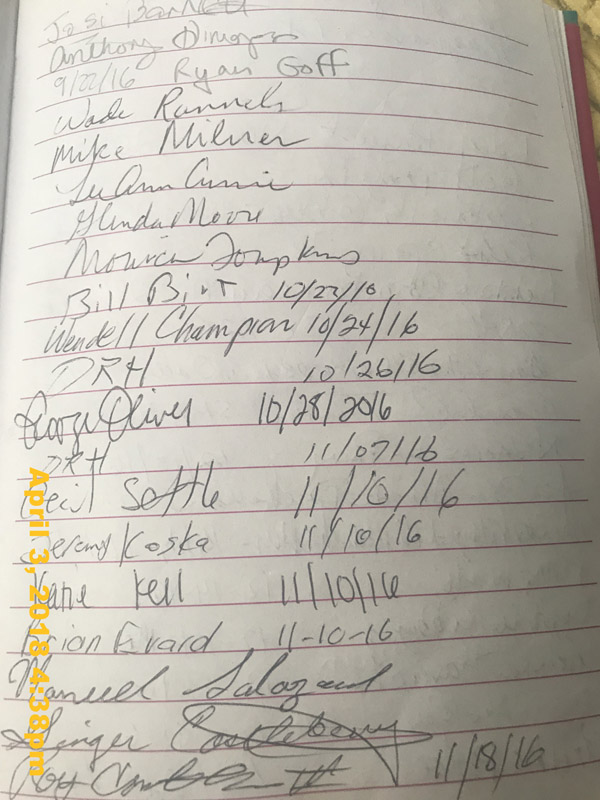 Anthony
9/22/16 Ryan Goff
Wade Runnels
Mike Milner
LuAnn
Glenda Moore
Tompkins
Bill Birt 10/22/16
Wendell Champion 10/24/16
DRH 10/26/16
George Oliver 10/28/2016
DRH 11/07/16
Cecil Settle 11/10/16
Jeremy Koska 11/10/16
Katie Kell 11/10/16
Brian Evard 11-10-16
Manuel Salazar
Ginger Castleberry
Roy 11/18/16
April 3, 2018 4:38pm